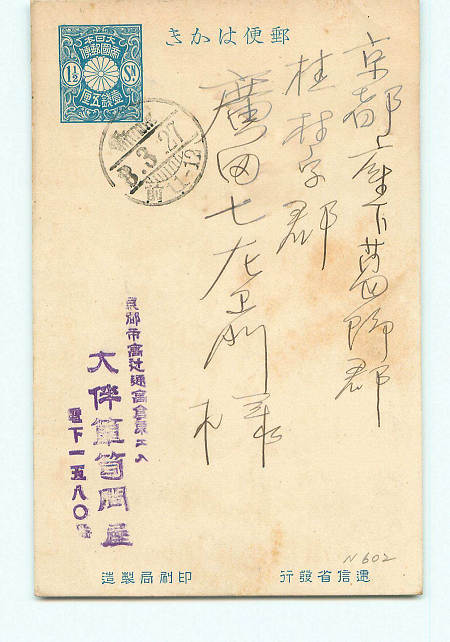 郵便はかき
大日本
帝國郵便
1½ Sn
壹銭五厘
3.27
前11-12
京都府下葛野郡
桂村字郡
廣田七左衛門様
京都市高辻通富倉東エ入
大伴簞笥問屋
電下一五八〇番
遞信省發行
印刷局製造
N602